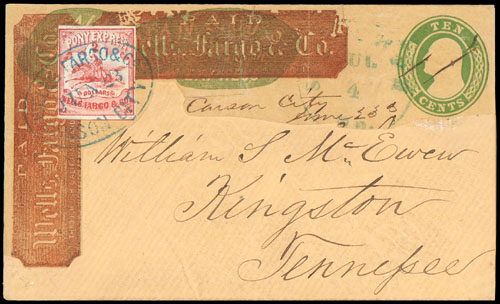 PAID
Wells, Fargo & Co.
PAID
Wells, Fargo & Co.
PONY EXPRESS
FARGO & C
2
DOLLARS
WELLS FARGO & Co
CARSON CITY
TEN
CENTS
4
Carson City
June 23d
William S McEwen
Kingston
Tennessee